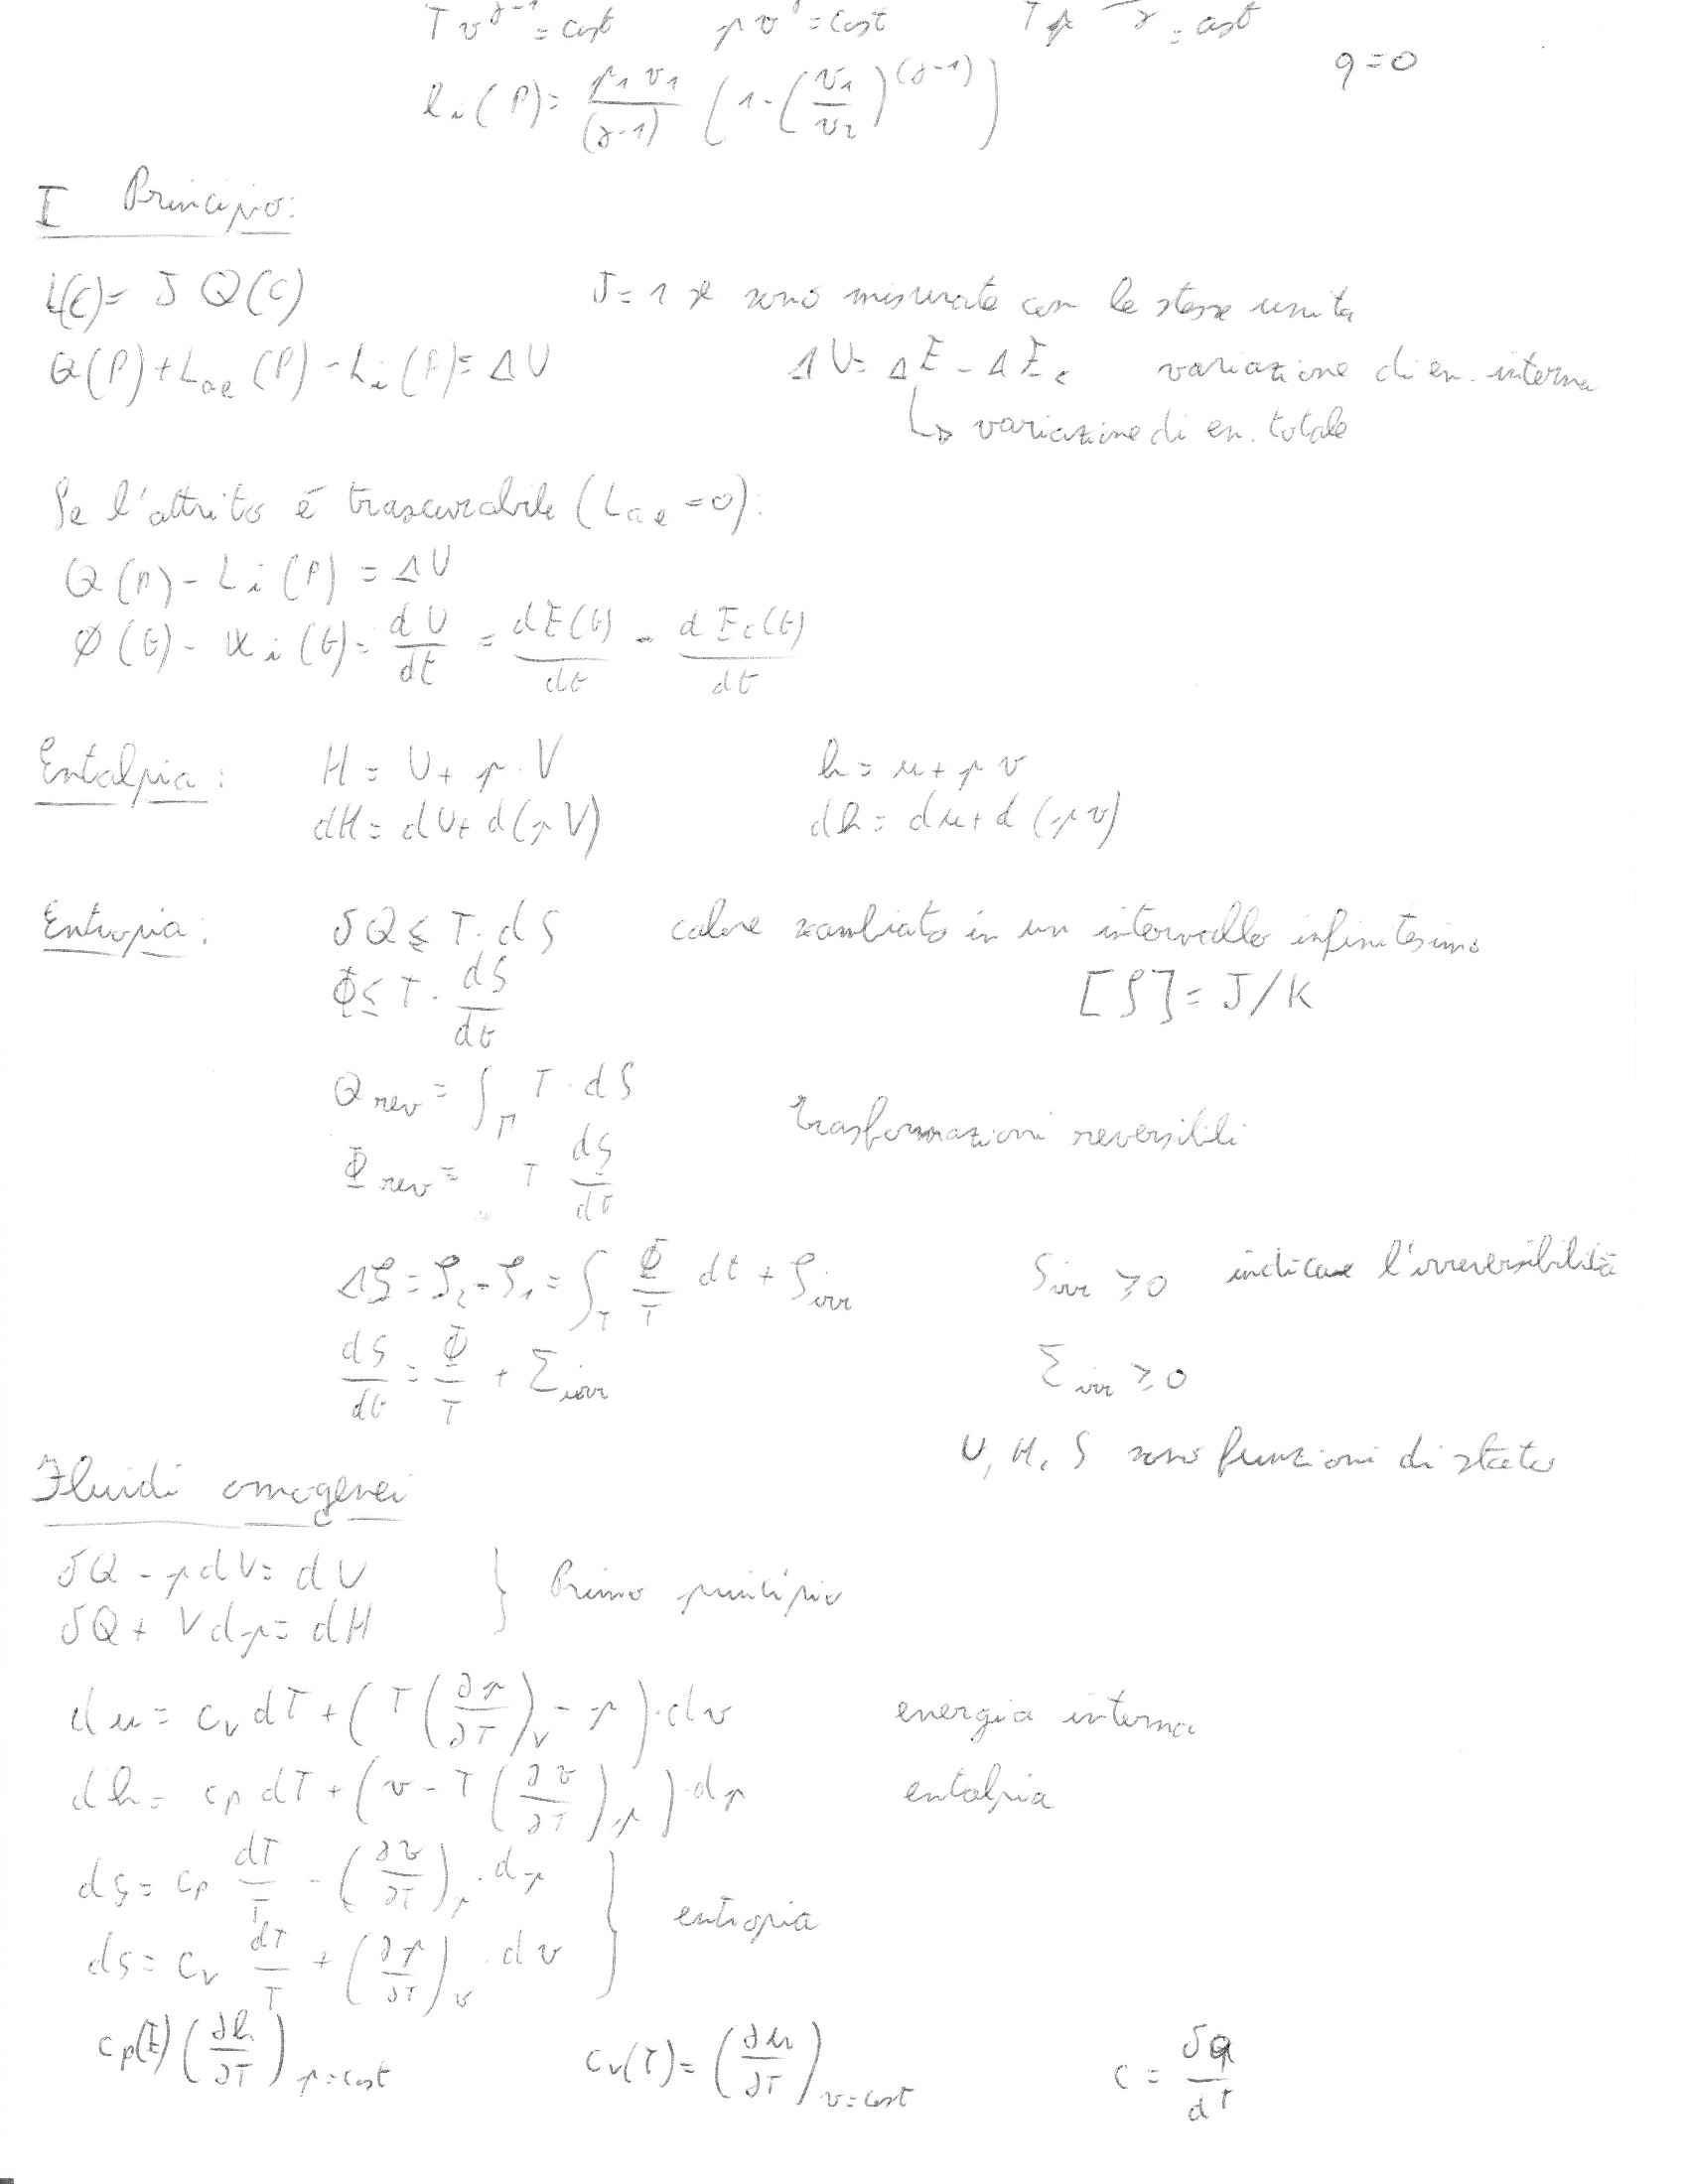 T v^(γ-1) = cost    p v^γ = cost    T p^(1-γ)/γ = cost
q = 0
l_i(P) = (p₁ v₁)/(γ-1) (1 - (v₁/v₂)^(γ-1))
I Principio:
L(C) = J Q(C)    J = 1 se sono misurate con le stesse unità
Q(P) + L_ae(P) - L_i(P) = ΔU    ΔU = ΔE - ΔE_c    variazione di en. interna
↳ variazione di en. totale
Se l'attrito è trascurabile (L_ae = 0):
Q(P) - L_i(P) = ΔU
Φ(t) - W_i(t) = dU/dt = dE(t)/dt - dE_c(t)/dt
Entalpia:    H = U + p · V    h = u + p v
dH = dU + d(p V)    dh = du + d(p v)
Entropia:    δQ ≤ T · dS    calore scambiato in un intervallo infinitesimo
Φ ≤ T · dS/dt    [S] = J/K
Q_rev = ∫_P T · dS    trasformazioni reversibili
Φ_rev = T dS/dt
ΔS = S₂ - S₁ = ∫_τ Φ/T dt + S_irr    S_irr ≥ 0    indica l'irreversibilità
dS/dt = Φ/T + Σ_irr    Σ_irr ≥ 0
U, H, S sono funzioni di stato
Fluidi omogenei
δQ - p dV = dU
δQ + V dp = dH    } Primo principio
du = c_v dT + (T (∂p/∂T)_v - p) · dv    energia interna
dh = c_p dT + (v - T (∂v/∂T)_p) · dp    entalpia
ds = c_p dT/T - (∂v/∂T)_p · dp
ds = c_v dT/T + (∂p/∂T)_v · dv    } entropia
c_p(T) (∂h/∂T)_p=cost    c_v(T) = (∂u/∂T)_v=cost    c = δq/dT